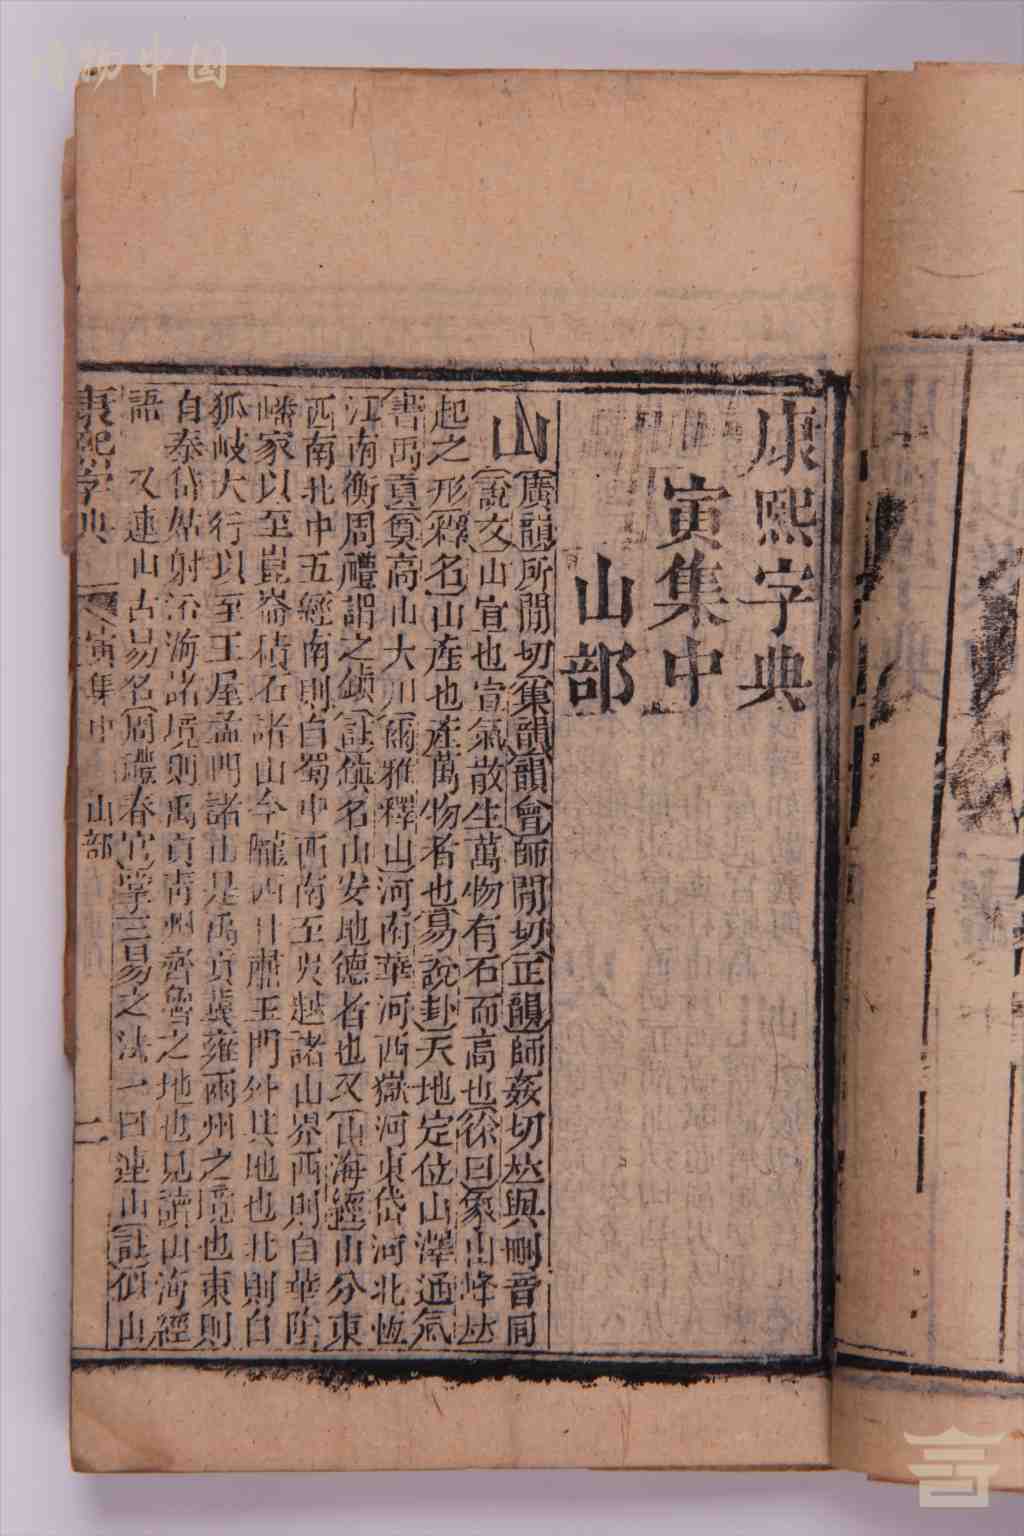 康熙字典
寅集中
山部
山 廣韻所閒切集韻韻會師閒切正韻師姦切𠀤與刪音同
說文山宣也宣氣散生萬物有石而高也徐曰象山峰𠀤
起之形釋名山產也產萬物者也易說卦天地定位山澤通氣
書禹貢奠高山大川爾雅釋山河南華河西嶽河東岱河北恆
江南衡周禮謂之鎮註鎮名山安地德者也又山海經山分東
西南北中五經南則自蜀中西南至吳越諸山界西則自華陰
嶓冢以至崑崙積石諸山今隴西甘肅玉門外其地也北則自
狐岐大行以至王屋孟門諸山是禹貢冀雍兩州之境也東則
自泰岱姑射沿海諸境則禹貢靑州齊魯之地也見讀山海經
語 又連山古易名周禮春官掌三易之法一曰連山註似山
康熙字典 寅集中 山部 二
博物中国